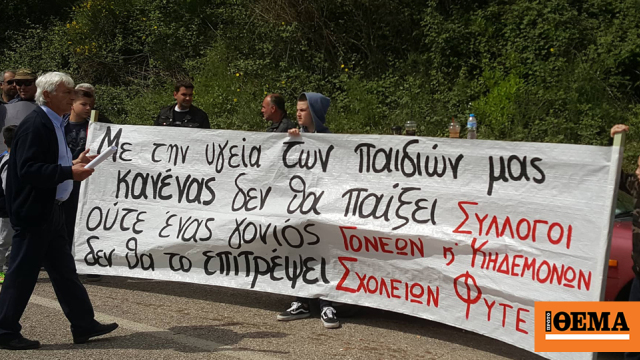 Με την υγεία των παιδιών μας
κανένας δεν θα παίξει
ούτε ένας γονιός
δεν θα το επιτρέψει
ΣΥΛΛΟΓΟΙ
ΓΟΝΕΩΝ η' ΚΗΔΕΜΟΝΩΝ
ΣΧΟΛΕΙΩΝ ΦΥΤΕ
ΠΡΩΤΟ ΘΕΜΑ